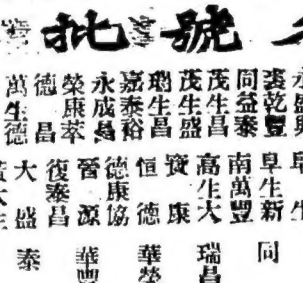 號批
裘乾豐
同益泰
茂生昌
茂生盛
瑞生昌
嘉泰裕
永成昌
榮康萃
德昌
萬生德
阜生新
南萬豐
高生大
寶康
恒德
德康協
晉源
復泰昌
大盛
同
瑞昌
華榮
華豐
泰